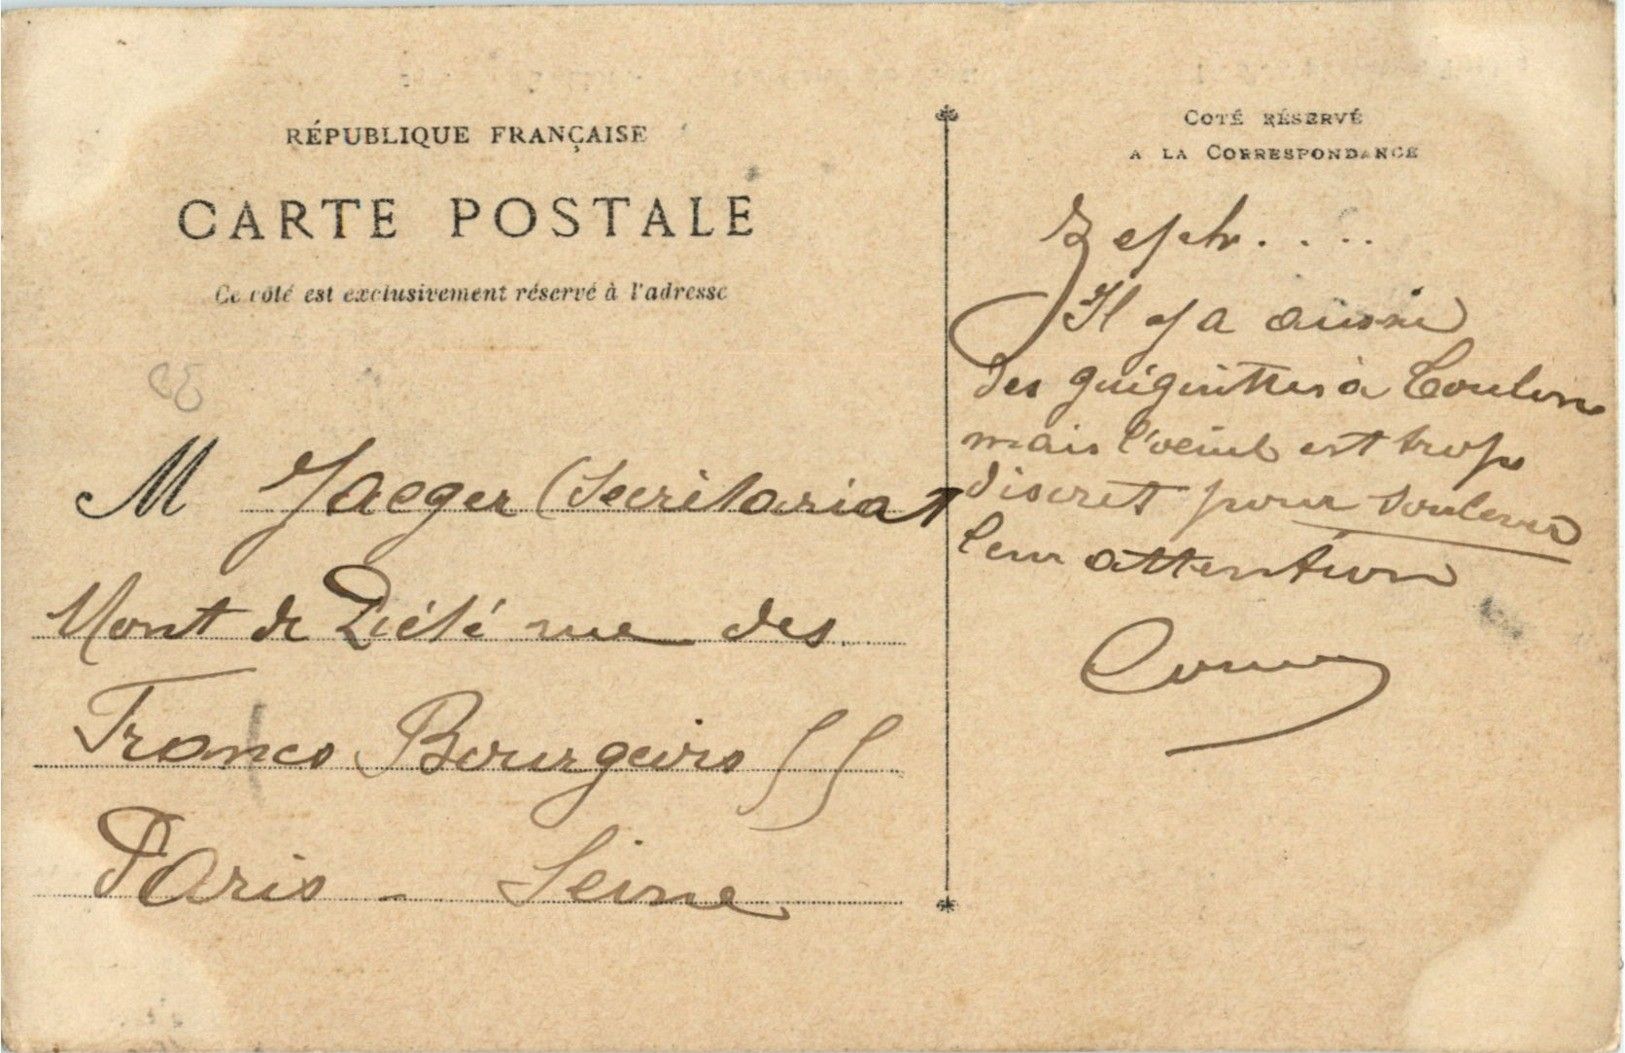 RÉPUBLIQUE FRANÇAISE
CARTE POSTALE
Ce côté est exclusivement réservé à l'adresse
M Jaeger (Secrétariat
Mont de Piété rue des
Francs Bourgeois 55
Paris - Seine
COTÉ RÉSERVÉ
A LA CORRESPONDANCE
Zeph....
Il y a aussi
des à Toulon
mais l'oeil est trop
discret pour soulever
leur attention